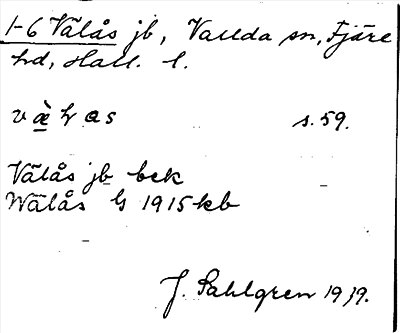 1-6 Välås jb, Vallda sn, Fjäre
hd, Hall. l.
s. 59.
Välås jb bek
Wälås G 1915 kb
J. Sahlgren 1939.